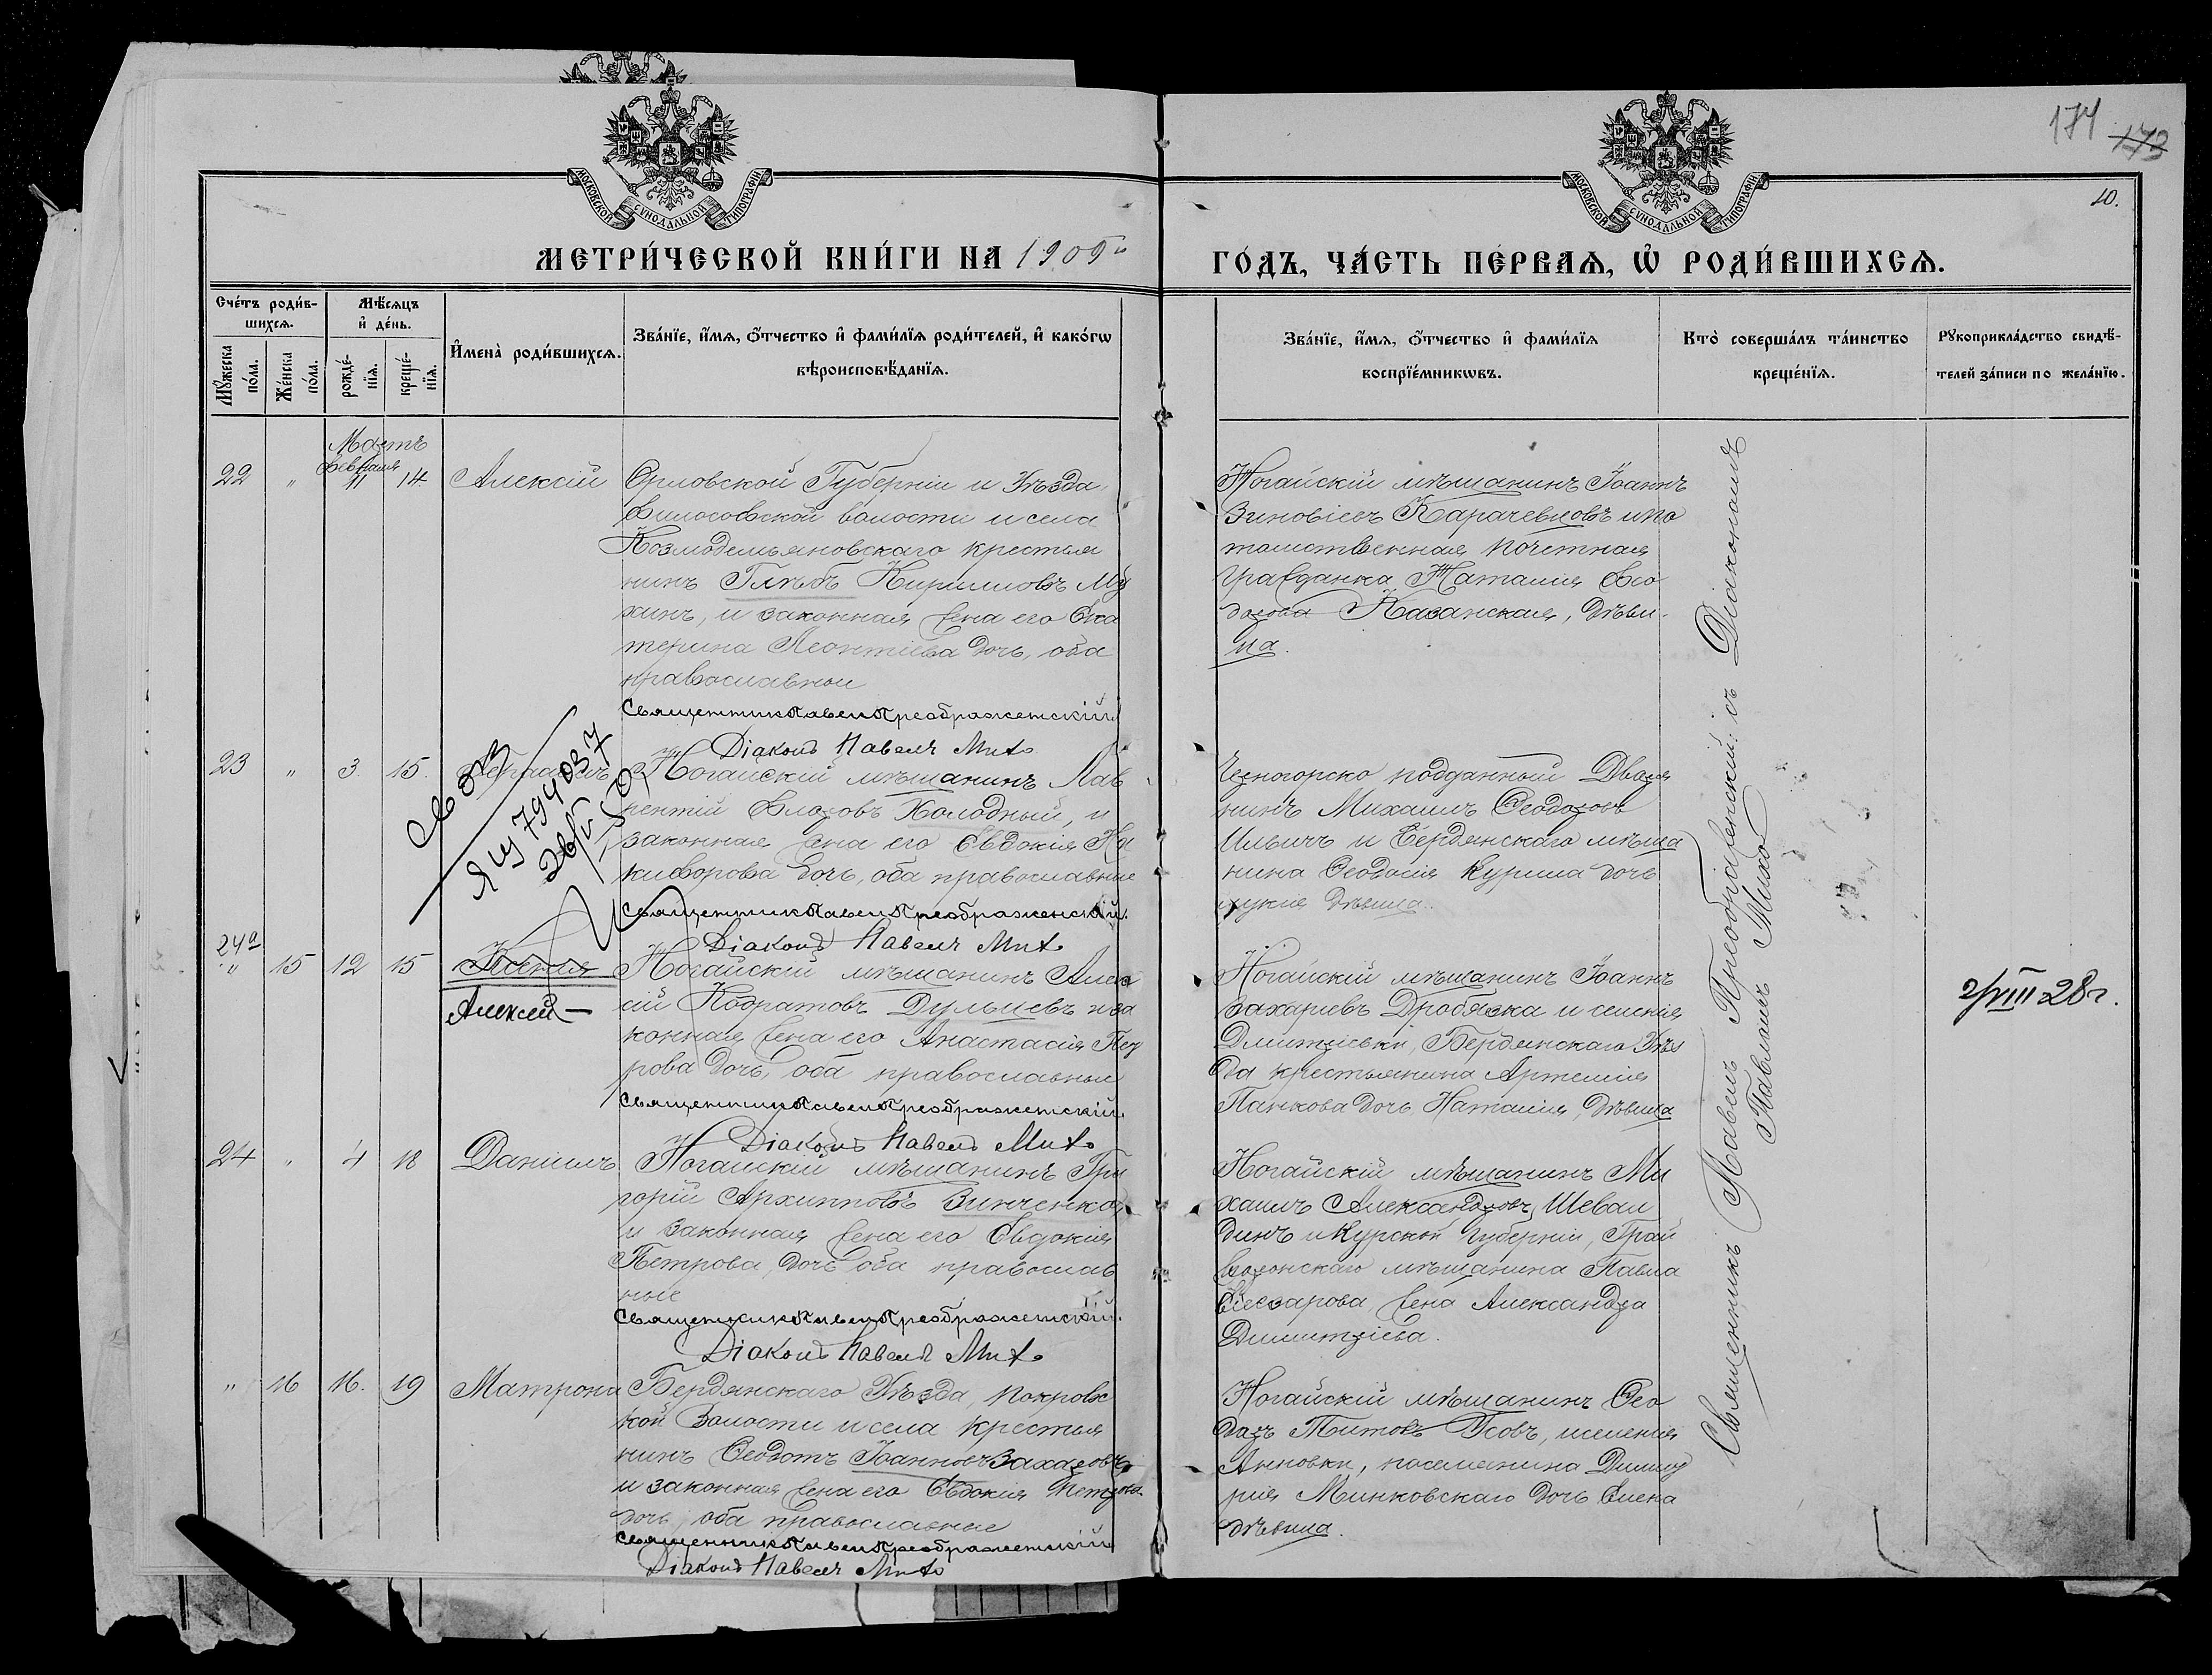 174 173
10.
МОСКОВСКОЙ СѴНОДАЛЬНОЙ ТИПОГРАФІИ
МОСКОВСКОЙ СѴНОДАЛЬНОЙ ТИПОГРАФІИ
МЕТРИ́ЧЕСКОЙ КНИ́ГИ НА 1905й
ГО́ДЪ, ЧА́СТЬ ПЕ́РВАѦ, Ѡ҆ РОДИ́ВШИХСѦ.
Сче́тъ роди́в-
шихсѧ.
Мꙋ́жеска
по́ла.
Же́нска
по́ла.
Мѣ́сѧцъ
и҆ де́нь.
рожде́-
нїѧ.
креще́-
нїѧ.
И҆мена̀ роди́вшихсѧ.
Зва́нїе, и҆́мѧ, ѻ҆́тчество и҆ фами́лїѧ роди́телей, и҆ како́гѡ
вѣроисповѣ́данїѧ.
Зва́нїе, и҆́мѧ, ѻ҆́тчество и҆ фами́лїѧ
воспрїе́мникѡвъ.
Кто̀ соверша́лъ та́инство
креще́нїѧ.
Рꙋкоприкла́дство свидѣ́-
телей за́писи по жела́нїю.
Мартъ
Февраля
22 " 11 14 Алексій
Орловской Губерніи и Уѣзда,
Философской волости и села
Козмодемьяновскаго крестья
нинъ Глѣбъ Кирилловъ Му
хинъ, и законная жена его Ека
терина Леонтіева дочь, оба
православные
Священникъ Павелъ Преображенскій
Діаконъ Павелъ Михо
Ногайскій мѣщанинъ Іоаннъ
Зиновіевъ Карачевцовъ и по
томственная почетная
гражданка Наталія Ѳео
дорова Казанская, дѣви-
ца.
23 " 3 15.
Ногайскій мѣщанинъ Лав
рентій Флоровъ Колодный, и
законная жена его Евдокія Ни
кифорова дочь, оба православные
Священникъ Павелъ Преображенскій
Діаконъ Павелъ Михо
Черногорско подданный Дворя
нинъ Михаилъ Ѳеодоровъ
Ильичъ и Бердянскаго мѣща
нина Ѳеодосія Курила дочь
Лукія дѣвица.
ЯЦ 794037
24а
" 15 12 15 Ксенія
Алексей —
Ногайскій мѣщанинъ Алек
сій Кодратовъ Дульцевъ и за
конная жена его Анастасія Пет
рова дочь, оба православные
Священникъ Павелъ Преображенскій
Діаконъ Павелъ Михо
Ногайскій мѣщанинъ Іоаннъ
Захаріевъ Дробязка и селенія
Дмитріевки, Бердянскаго Уѣз
да крестьянина Артемія
Панкова дочь Наталія, дѣвица
2/VIII 28 г.
24 " 4 18 Даніилъ
Ногайскій мѣщанинъ Гри
горій Архипповъ Зинченко,
и законная жена его Евдокія
Петрова, дочь оба православ
ные
Священникъ Павелъ Преображенскій
Діаконъ Павелъ Михо
Ногайскій мѣщанинъ Ми
хаилъ Александровъ Шевал
динъ и Курской губерніи, Грай
воронскаго мѣщанина Павла
жена Александра
Димитріева.
" 16 16. 19 Матрона
Бердянскаго Уѣзда, Покровс
кой волости и села крестья
нинъ Ѳеодотъ Іоанновъ Захаровъ
и законная жена его Евдокія Петрова
дочь, оба православные
Священникъ Павелъ Преображенскій
Діаконъ Павелъ Михо
Ногайскій мѣщанинъ Ѳео
доръ Титовъ Усовъ, и селенія
Анновки, поселянина Димит
рія Минковскаго дочь Елена
дѣвица.
Священникъ Павелъ Преображенскій съ Діакономъ
Павломъ Михо